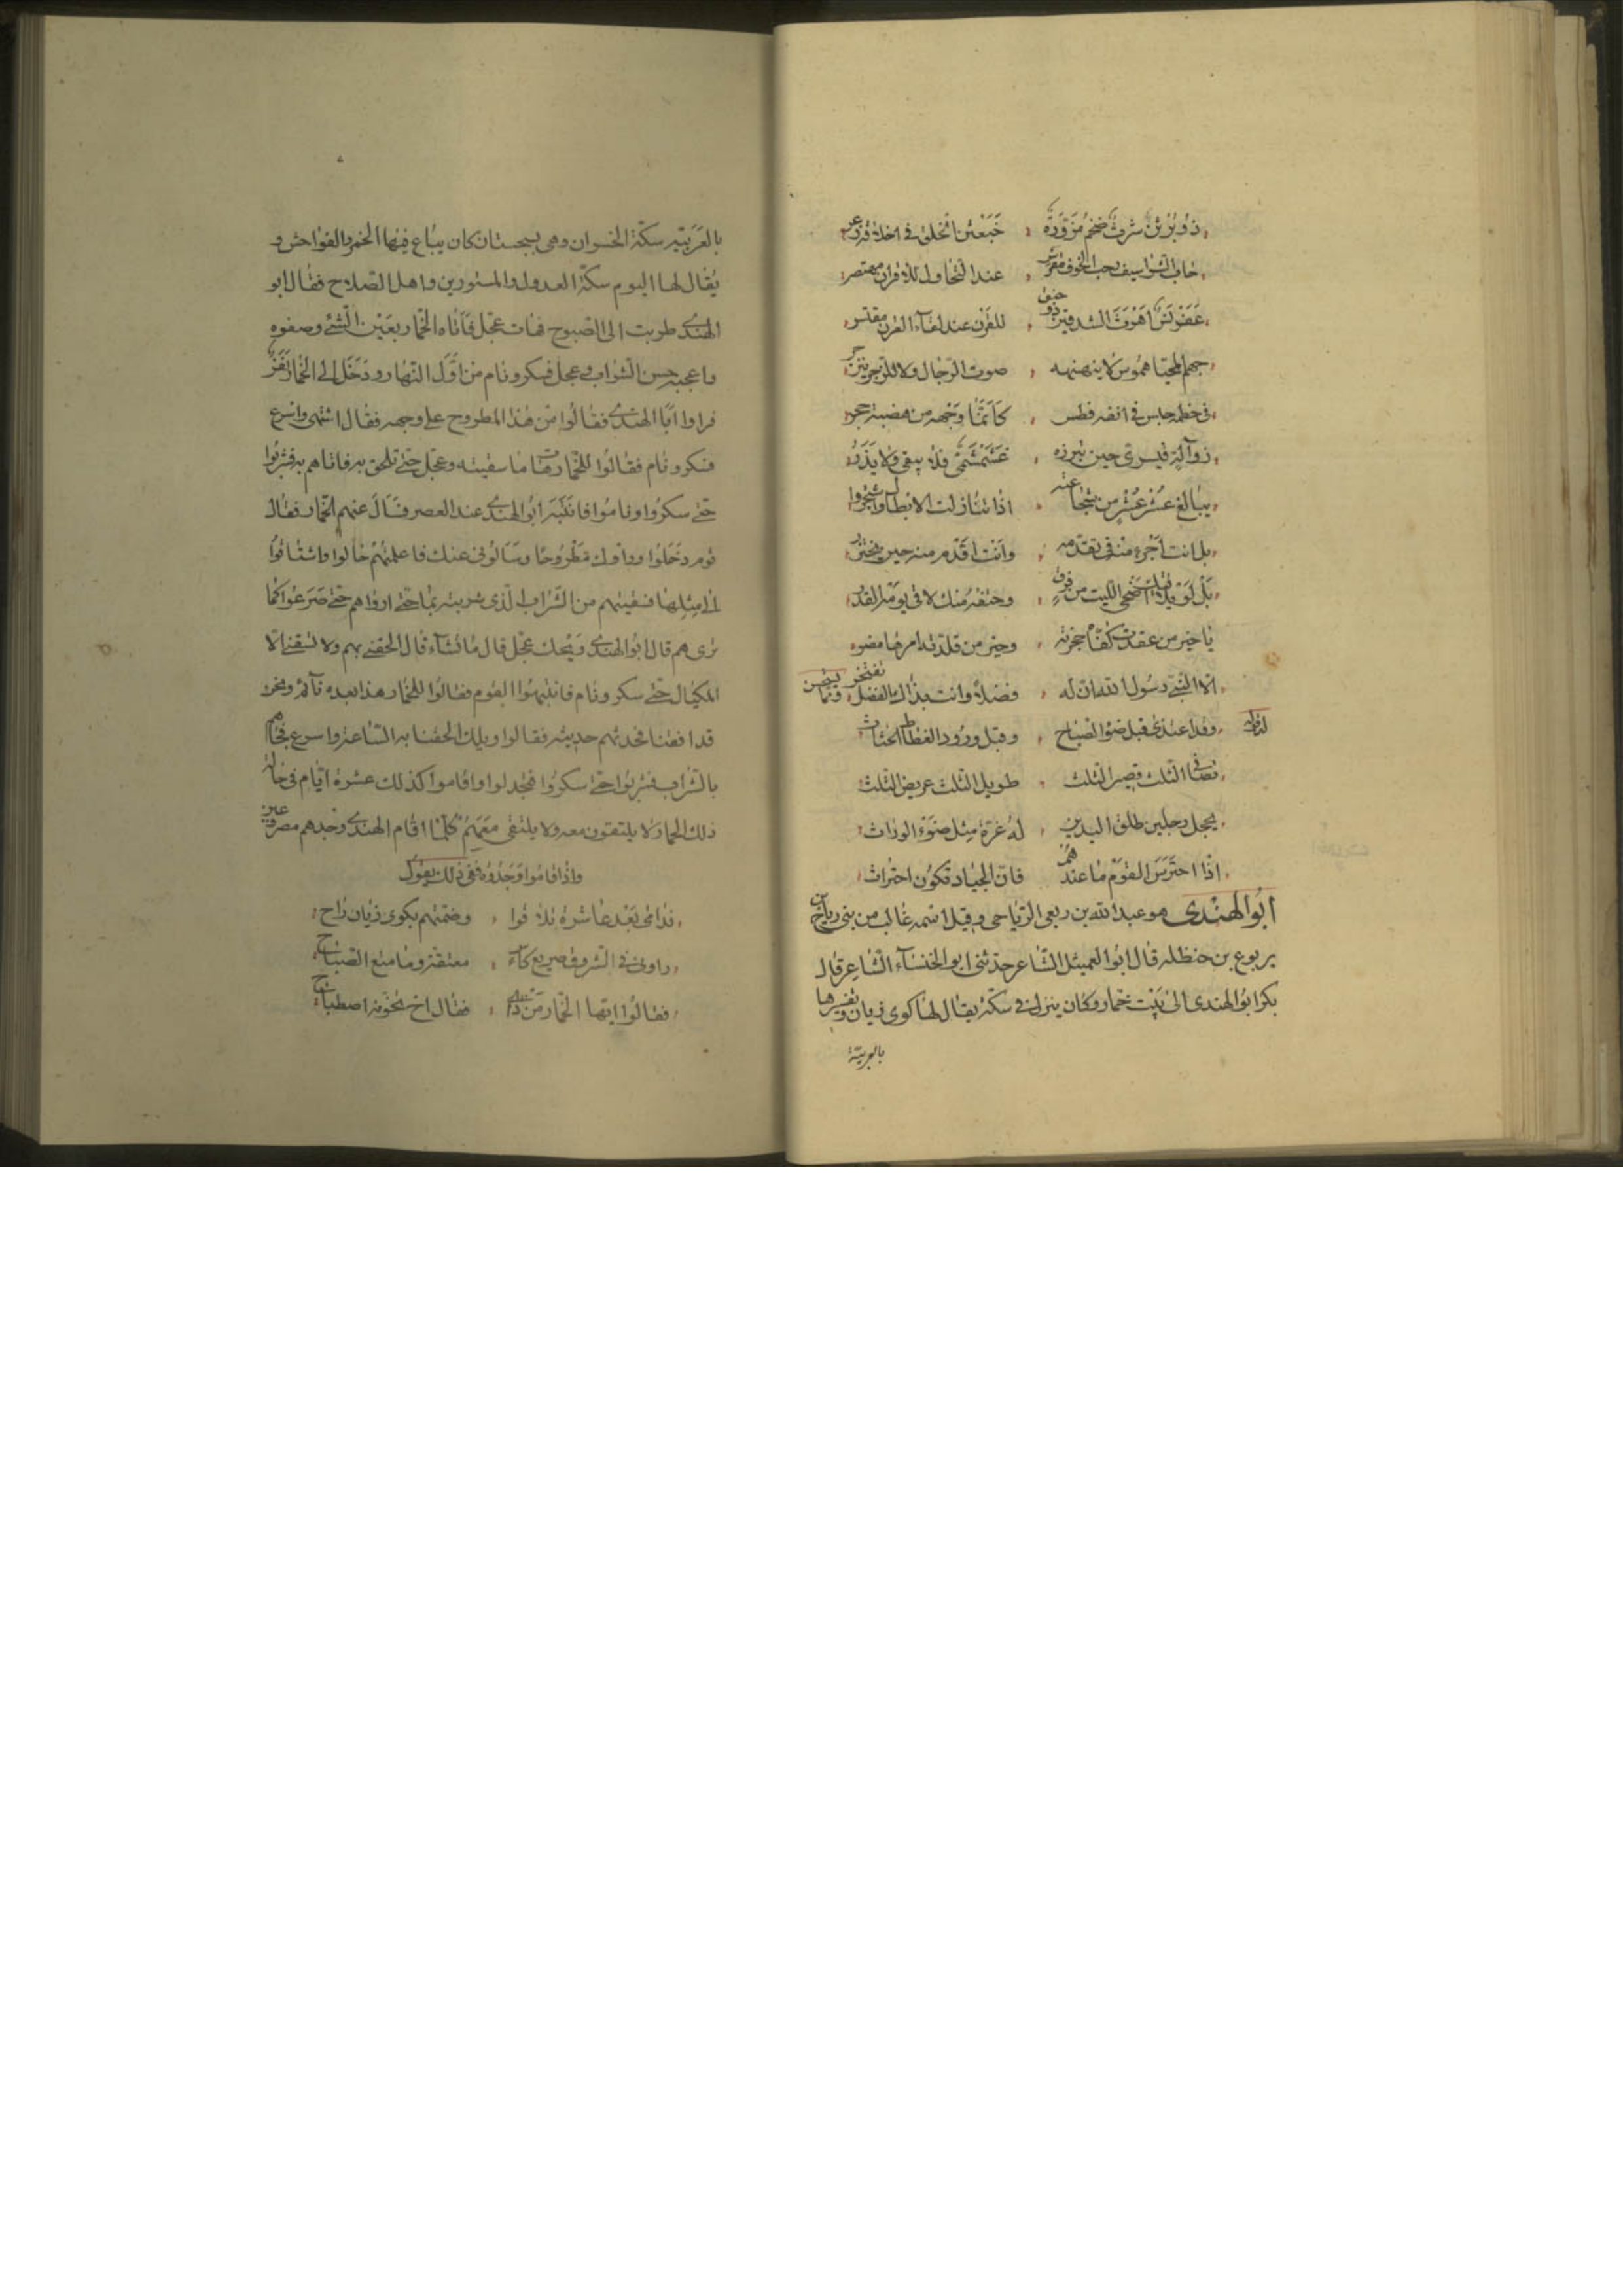 ذو برثن شرث ضخم مزوره خبعثن الخلق في اخلاقه زعر
جاب الشراسيف رحب الجوف عند التجاول للاقران مهتصر
عفرنس اهرت الشدقين ذو حنق للقرن عند لقاء القرن مقتسر
جهم المحيا هموس لا ينهنهه صوت الرجال ولا للزجر ينزجر
في خطمه خنس في انفه فطس كانما وجهه من هضبة حجر
عشمشمى فلا يبقى ولا يذر
يبالغ عشر عشر من شجاعته اذا تنازلت الابطال واشتجروا
بل انت اجرء منه في تقدمه وانت اقدم منه حين يجترر
بل لو يلاقيك اضحى الليث من فرق وحتفه منك لاقى يومه القدر
يا خير من عقدت كفاه حجزته وخير من قلدته امرها مضر
الا النبي رسول الله ان له فضلا وانت بذاك الفضل تفتخر ومما يستحسن
له قوله وقد اغتدى قبل ضوء الصباح وقبل ورود الغطاط الحثاث
بصافى الثلث قصير الثلث طويل الثلث عريض الثلث
يحجل رجلين طلق اليدين له غرة مثل ضوء الوراث
اذا احترس القوم ما عندهم فان الجياد تكون احتراث
ابو الهندى هو عبد الله بن ربعى الرياحى وقيل اسمه غالب من بنى رياح بن
يربوع بن حنظله قال ابو العميثل الشاعر حدثنى ابو الخنساء الشاعر قال
بكر ابو الهندى الى بيت خمار وكان ينزل في سكة يقال لها كوى زيان وتفسيرها
بالعربية
بالعربيه سكة الخسران وهى بسجستان كان يباع فيها الخمر والفواحش و
يقال لها اليوم سكة العدول والمستورين واهل الصلاح فقال ابو
الهندى طربت الى الصبوح فهات عجل فاتاه الخمار بعين الشئ وصفوه
واعجبه حسن الشراب وعجل فسكر ونام من اول النهار ودخل الى الخمار نفر
فراوا ابا الهندى فقالوا من هذا المطروح على وجهه فقال انتهى واسرع
فسكر ونام فقالوا للخمار هات ما سقيته وعجل حتى تلحق به فاتاهم به فشربوا
حتى سكروا وناموا فانتبه ابو الهندى عند العصر فسال عنهم الخمار فقال
قوم دخلوا وراوك مطروحا وسالونى عنك فاعلمتهم حالوا واشتاقوا
الى مثلها فسقيتهم من الشراب الذى شربته بما حتى ارواهم حتى صرعوا كما
ترى هم قال ابو الهندى ويحك عجل قال ما تشاء قال الحقنى بهم ولا تسقنى الا
المكيال حتى سكر ونام فانتبهوا القوم فقالوا للخمار هذا بعده نائم ونحن
قد افقنا فحدثهم حديثه فقالوا ويلك الحقنا به الساعة واسرع فجاءهم
بالشراب فشربوا حتى سكروا فجدلوا واقاموا كذلك عشرة ايام في حانة
ذلك الخمار لا يلتقون معه ولا يلتقى معهم كلما اقام الهندى وجدهم مصروعين
واذا قاموا وجدوه ففى ذلك يقول
ندامى بعد عاشرة تلاقوا وضمتهم بكوى زيان راح
راونى في الشروق صريع كاس معتقة وما متع الصباح
فقالوا ايها الخمار من ذا فقال اخ تخونه اصطباح